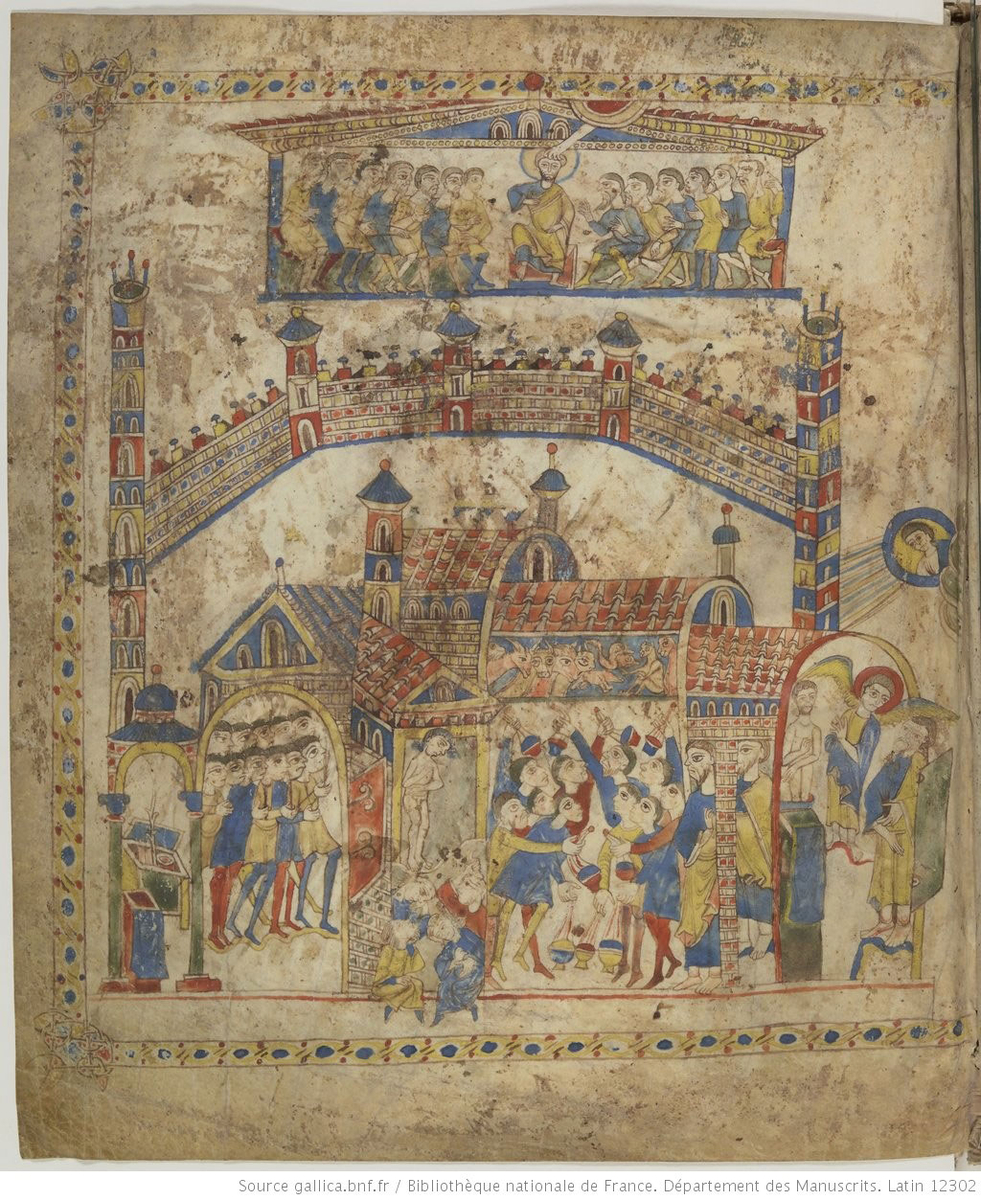 Source gallica.bnf.fr / Bibliothèque nationale de France. Département des Manuscrits. Latin 12302